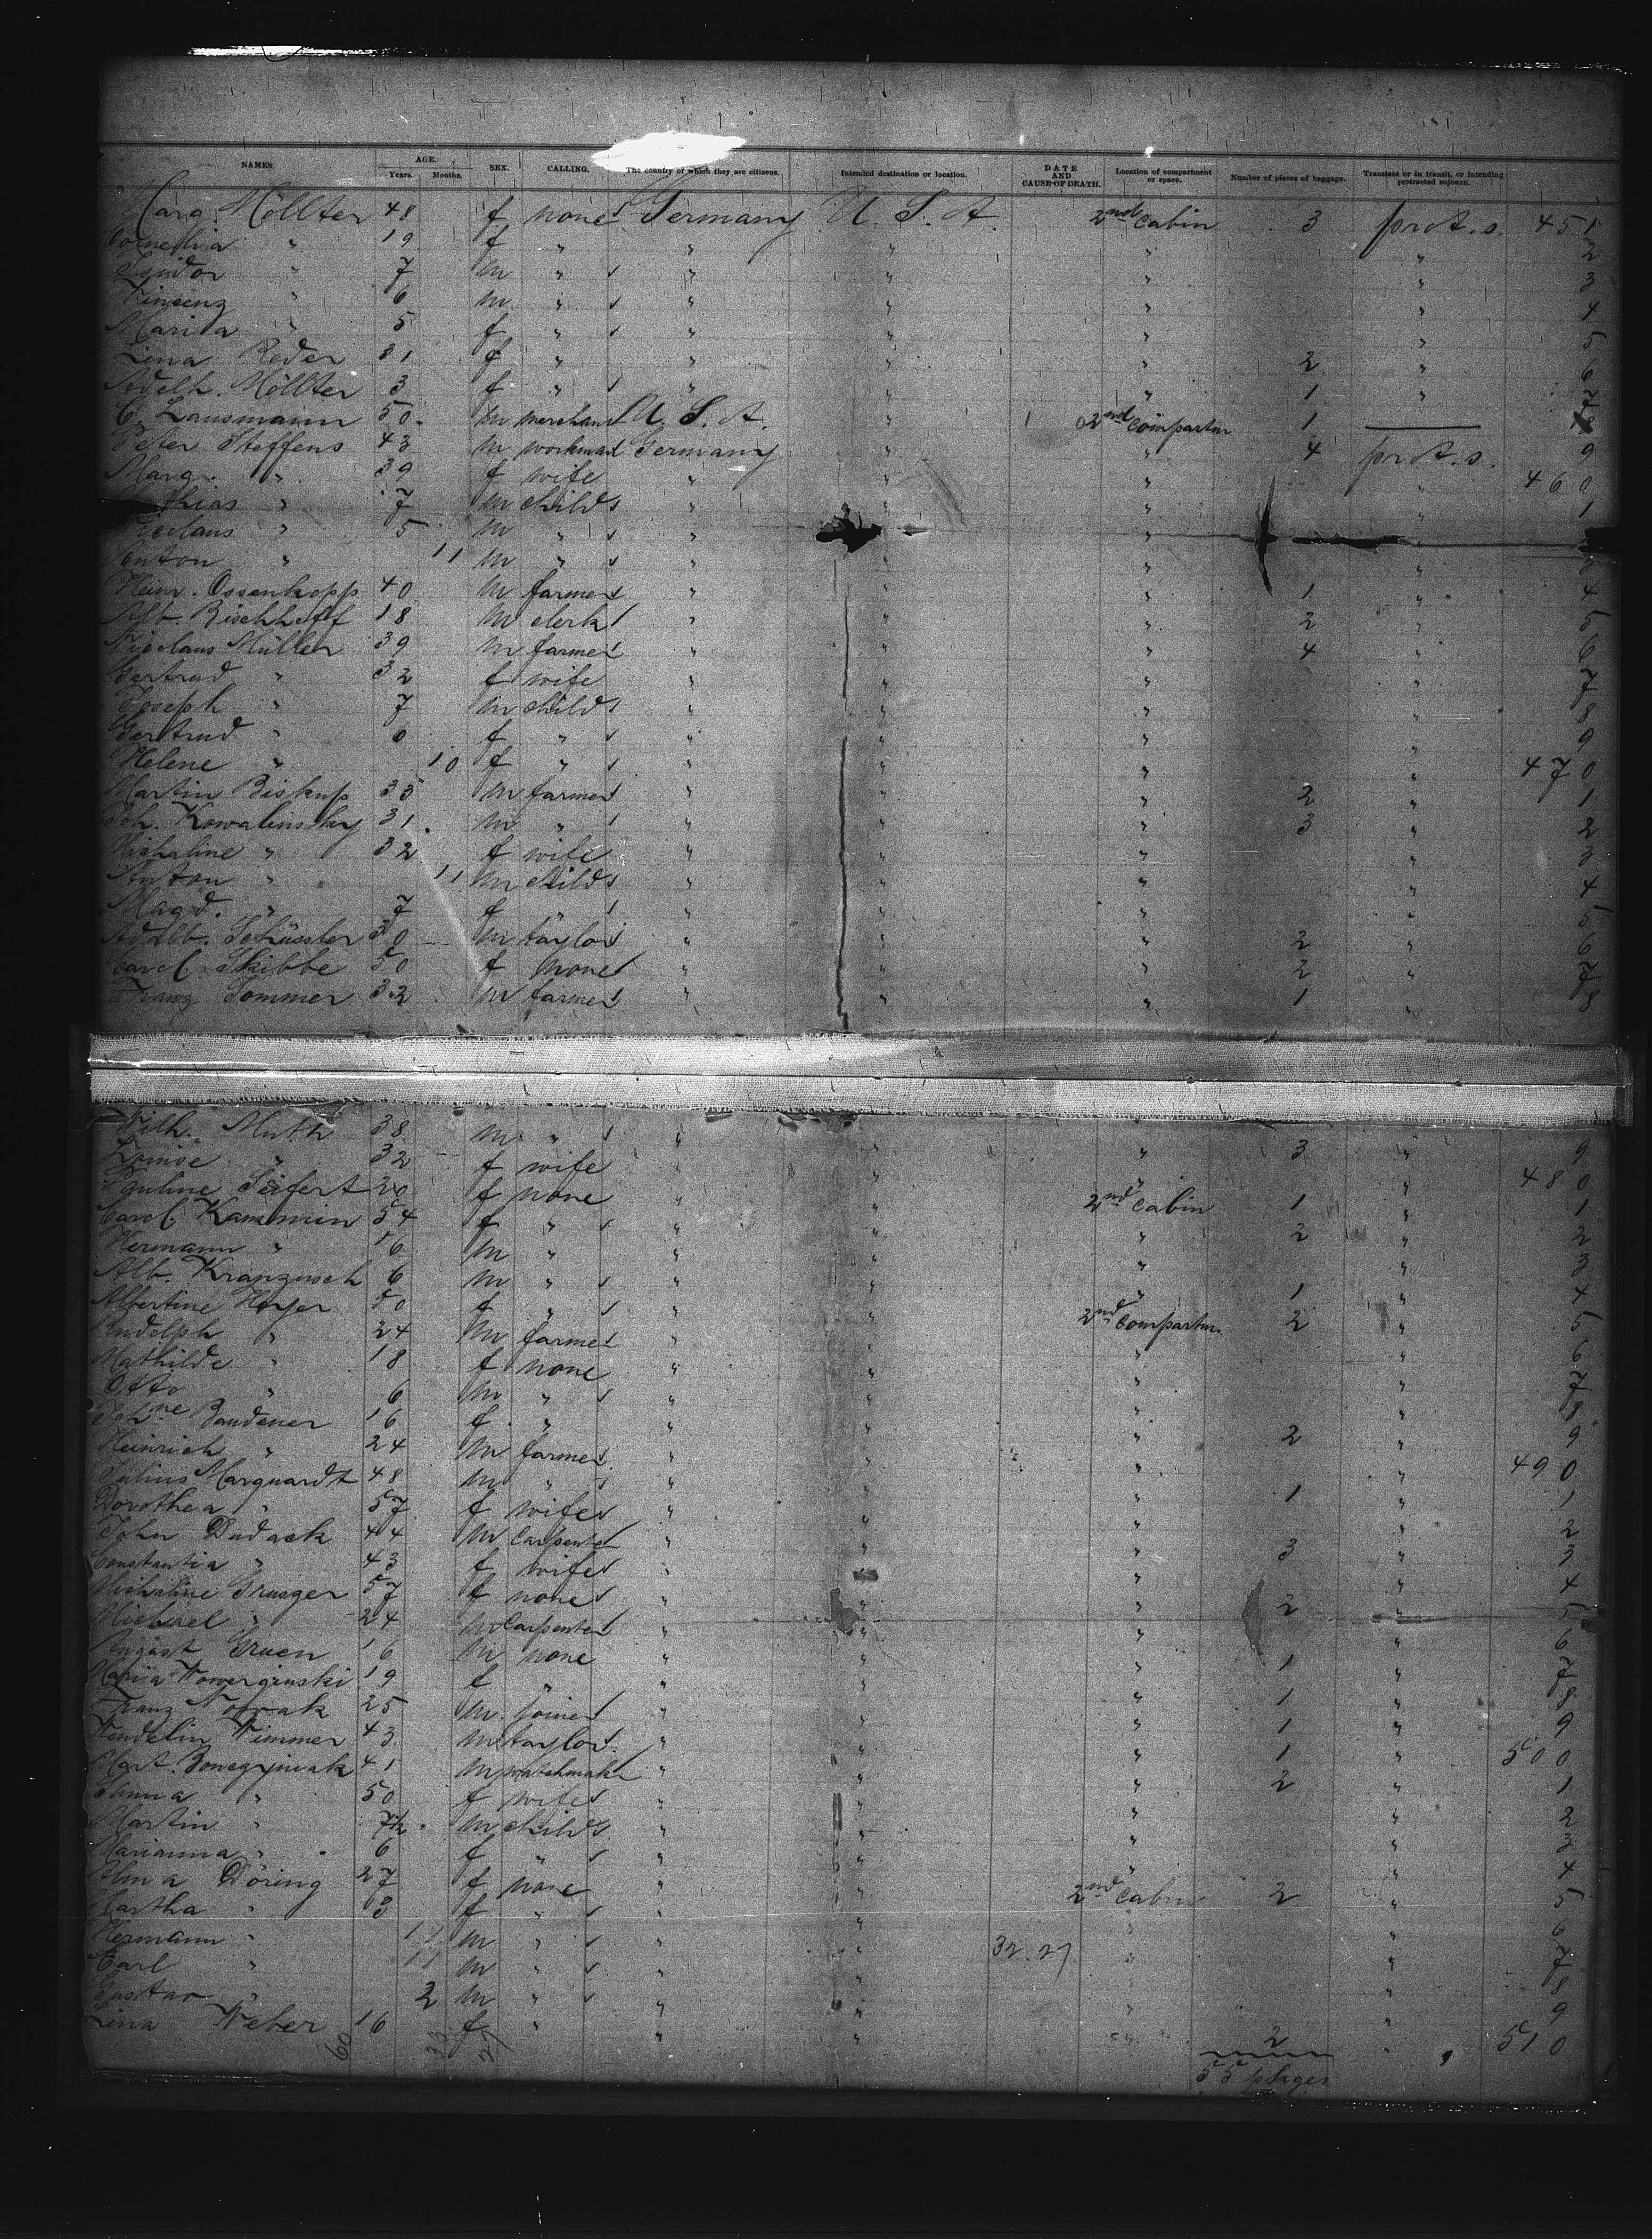 NAMES AGE. Years. Months. SEX. CALLING. The country of which they are citizens. Intended destination or location. DATE AND CAUSE OF DEATH. Location of compartment or space. Number of pieces of baggage. Transient or in transit, or intending protracted sojourn.
Marg. Möllter 48 f none Germany U. S. A. 2nd Cabin 3 prot. s. 451
Cornelia " 19 f " " " " " 2
Isidor " 7 m " " " " " 3
Vinsenz " 6 m " " " " " 4
Maria " 5 f " " " " " 5
Lina Reder 31 f " " " " 2 " 6
Adelh. Möllter 3 f " " " " 1 " 7
C. Lausmann 50 m merchant U. S. A. " 2nd Compartm 1 8
Peter Steffens 43 m workman Germany " " 4 prot. s. 9
Marg. " 39 f wife " " " " 460
thias " 7 m child " " " " 1
Nicolaus " 5 m " " " "
Anton " 11 m " " " " "
Heinr. Ossenkopp 40 m farmer " " " 1 " 4
Alb. Bischhoff 18 m clerk " " " 2 " 5
Nicolaus Müller 39 m farmer " " " 4 " 6
Gertrud " 32 f wife " " " " 7
Joseph " 7 m child " " " " 8
Gertrud " 6 f " " " " " 9
Helene " 10 f " " " " " 470
Martin Biskup 35 m farmer " " " 2 " 1
Joh. Kowalinsky 31 m " " " " 3 " 2
Michaline " 32 f wife " " " " 3
Anton " 11 m child " " " " 4
Magd. " 7 f " " " " " 5
Adalb. Schüssler 30 m taylor " " " 2 " 6
Carol. Skibbe 50 f none " " " 2 " 7
Franz Sommer 32 m farmer " " " 1 " 8
Wilh. Muth 38 m " " " " 3 " 9
Louise " 32 f wife " " " " 480
Pauline Seifert 20 f none " " 2nd Cabin 1 " 1
Carol. Kammin 54 f " " " " 2 " 2
Hermann " 16 m " " " " " 3
Alb. Kranzusch 6 m " " " " 1 " 4
Albertine Heyer 50 f " " " 2nd Compartm. 2 " 5
Rudolph " 24 m farmer " " " " 6
Mathilde " 18 f none " " " " 7
Otto " 6 m " " " " " 8
Joh.ne Baudener 16 f " " " " 2 " 9
Heinrich " 24 m farmer " " " " 490
Julius Marquardt 48 m " " " " 1 " 1
Dorothea " 57 f wife " " " " 2
John Dudack 44 m Carpenter " " " 3 " 3
Constantia " 43 f wife " " " " 4
Michaline Grueger 57 f none " " " 2 " 5
Michael " 24 m Carpenter " " " " 6
August Gruen 16 m none " " " 1 " 7
Maria 19 f " " " " 1 " 8
Franz Nowak 25 m joiner " " " 1 " 9
Wendelin Wimmer 43 m taylor " " " 1 " 500
Mart. 41 m watchmaker " " " 2 " 1
Anna " 50 f wife " " " " 2
Martin " 7½ m child " " " " 3
Marianna " 6 f " " " " " 4
Alma Döring 27 f none " " 2nd Cabin 2 " 5
Martha " 3 f " " " " " 6
Hermann " 11 m " " " 32. 27 " " 7
Carl " 11 m " " " " 8
Gustav " 2 m " " " " 9
Lina Weber 16 f " " " 2 " 510
60 33 27 55 plages